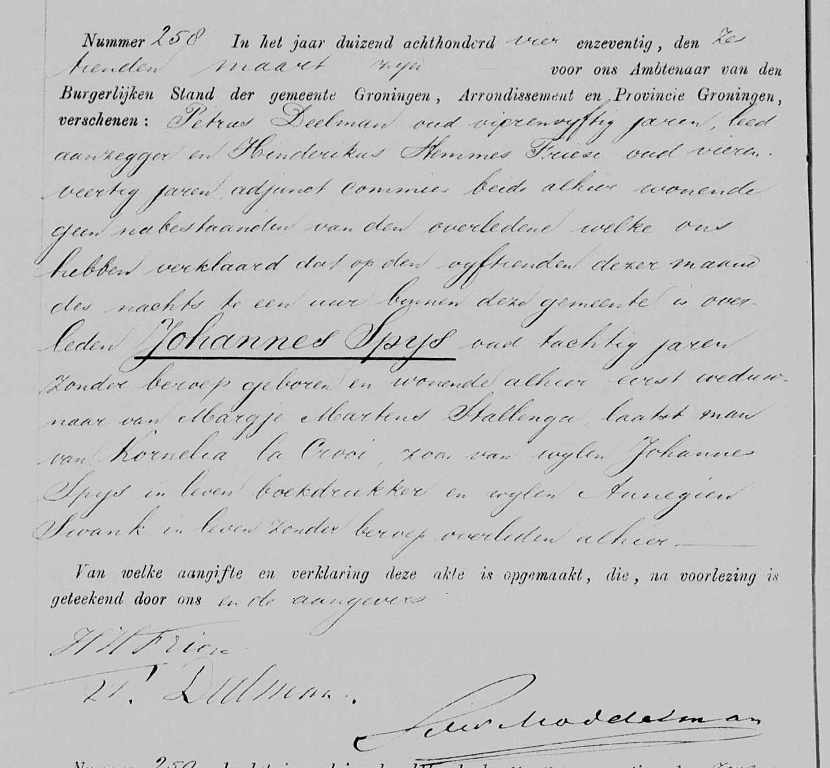 Nummer 258 In het jaar duizend achthonderd vier enzeventig, den zes
tienden maart zijn voor ons Ambtenaar van den
Burgerlijken Stand der gemeente Groningen, Arrondissement en Provincie Groningen,
verschenen: Petrus Deelman oud vierenvyftig jaren, leed
aanzegger en Henderikus Hemmes Friese oud vieren-
veertig jaren adjunct commies beide alhier wonende
geen nabestaanden van den overledene welke ons
hebben verklaard dat op den vyftienden dezer maand
des nachts te een uur binnen deze gemeente is over-
leden Johannes Spys oud tachtig jaren
zonder beroep geboren en wonende alhier eerst weduw-
naar van Margje Martens Stallenga, laatst man
van Kornelia la Croi, zoon van wylen Johannes
Spys in leven boekdrukker en wylen Annegien
Swank in leven zonder beroep overleden alhier.
Van welke aangifte en verklaring deze akte is opgemaakt, die, na voorlezing is
geteekend door ons en de aangevers
HH Friese
P. Deelman.
Modderman
Nummer 259